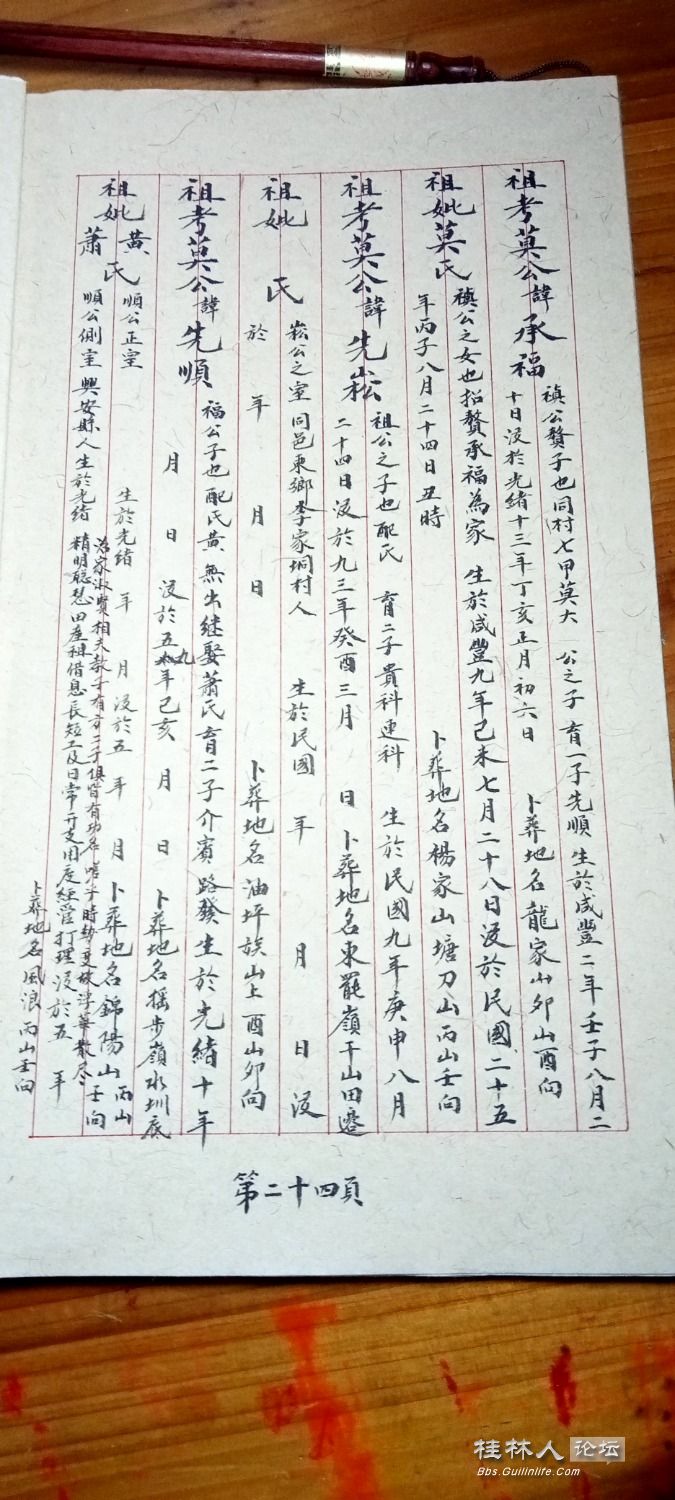 祖考莫公諱承福
禎公贅子也同村七甲莫大 公之子 育一子先順 生於咸豐二年壬子八月二
十日沒於光緒十三年丁亥正月初六日 卜葬地名龍家山卯山酉向
祖妣莫氏
禎公之女也招贅承福為家 生於咸豐九年己未七月二十八日沒於民國二十五
年丙子八月二十四日丑時 卜葬地名楊家山塘刀山丙山壬向
祖考莫公諱先崧
祖公之子也配氏 育二子貴科連科 生於民國九年庚申八月
二十四日沒於九三年癸酉三月 日 卜葬地名東羆嶺干山田邊
祖妣 氏
崧公之室同邑東鄉李家垌村人 生於民國 年 月 日沒
於 年 月 日 卜葬地名油坪族山上酉山卯向
祖考莫公諱先順
福公子也配氏黃無出继娶蕭氏育二子介賓路發生於光緒十年
月 日 沒於五九年己亥 月 日 卜葬地名摇步嶺水圳底
祖妣黃蕭氏
順公正室 生於光緒 年 月 沒於五 年 月 卜葬地名錦陽山丙山壬向
順公側室 興安縣人 生於光緒
治家淑賢相夫教子有方二子俱皆有功名 時勢變故浮華散尽
精明聪慧田產租借息長短工及日常开支用度經營打理沒於五 年
卜葬地名風浪丙山壬向
第二十四頁
桂林人论坛
Bbs.Guilinlife.Com